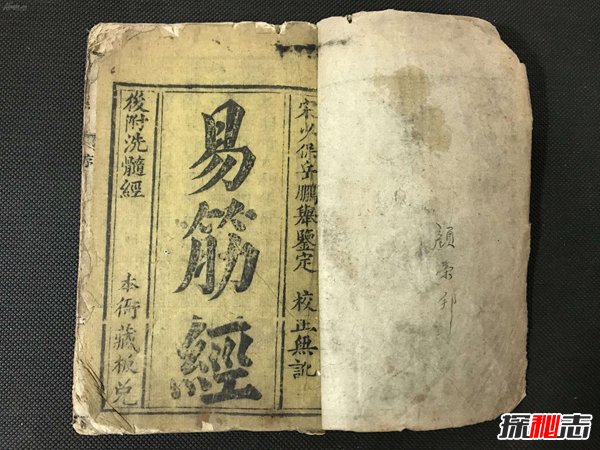 宋少保岳鵬舉鑒定 校正無訛
易筋經
後附洗髓經 本衙藏板兌
顧
探秘志